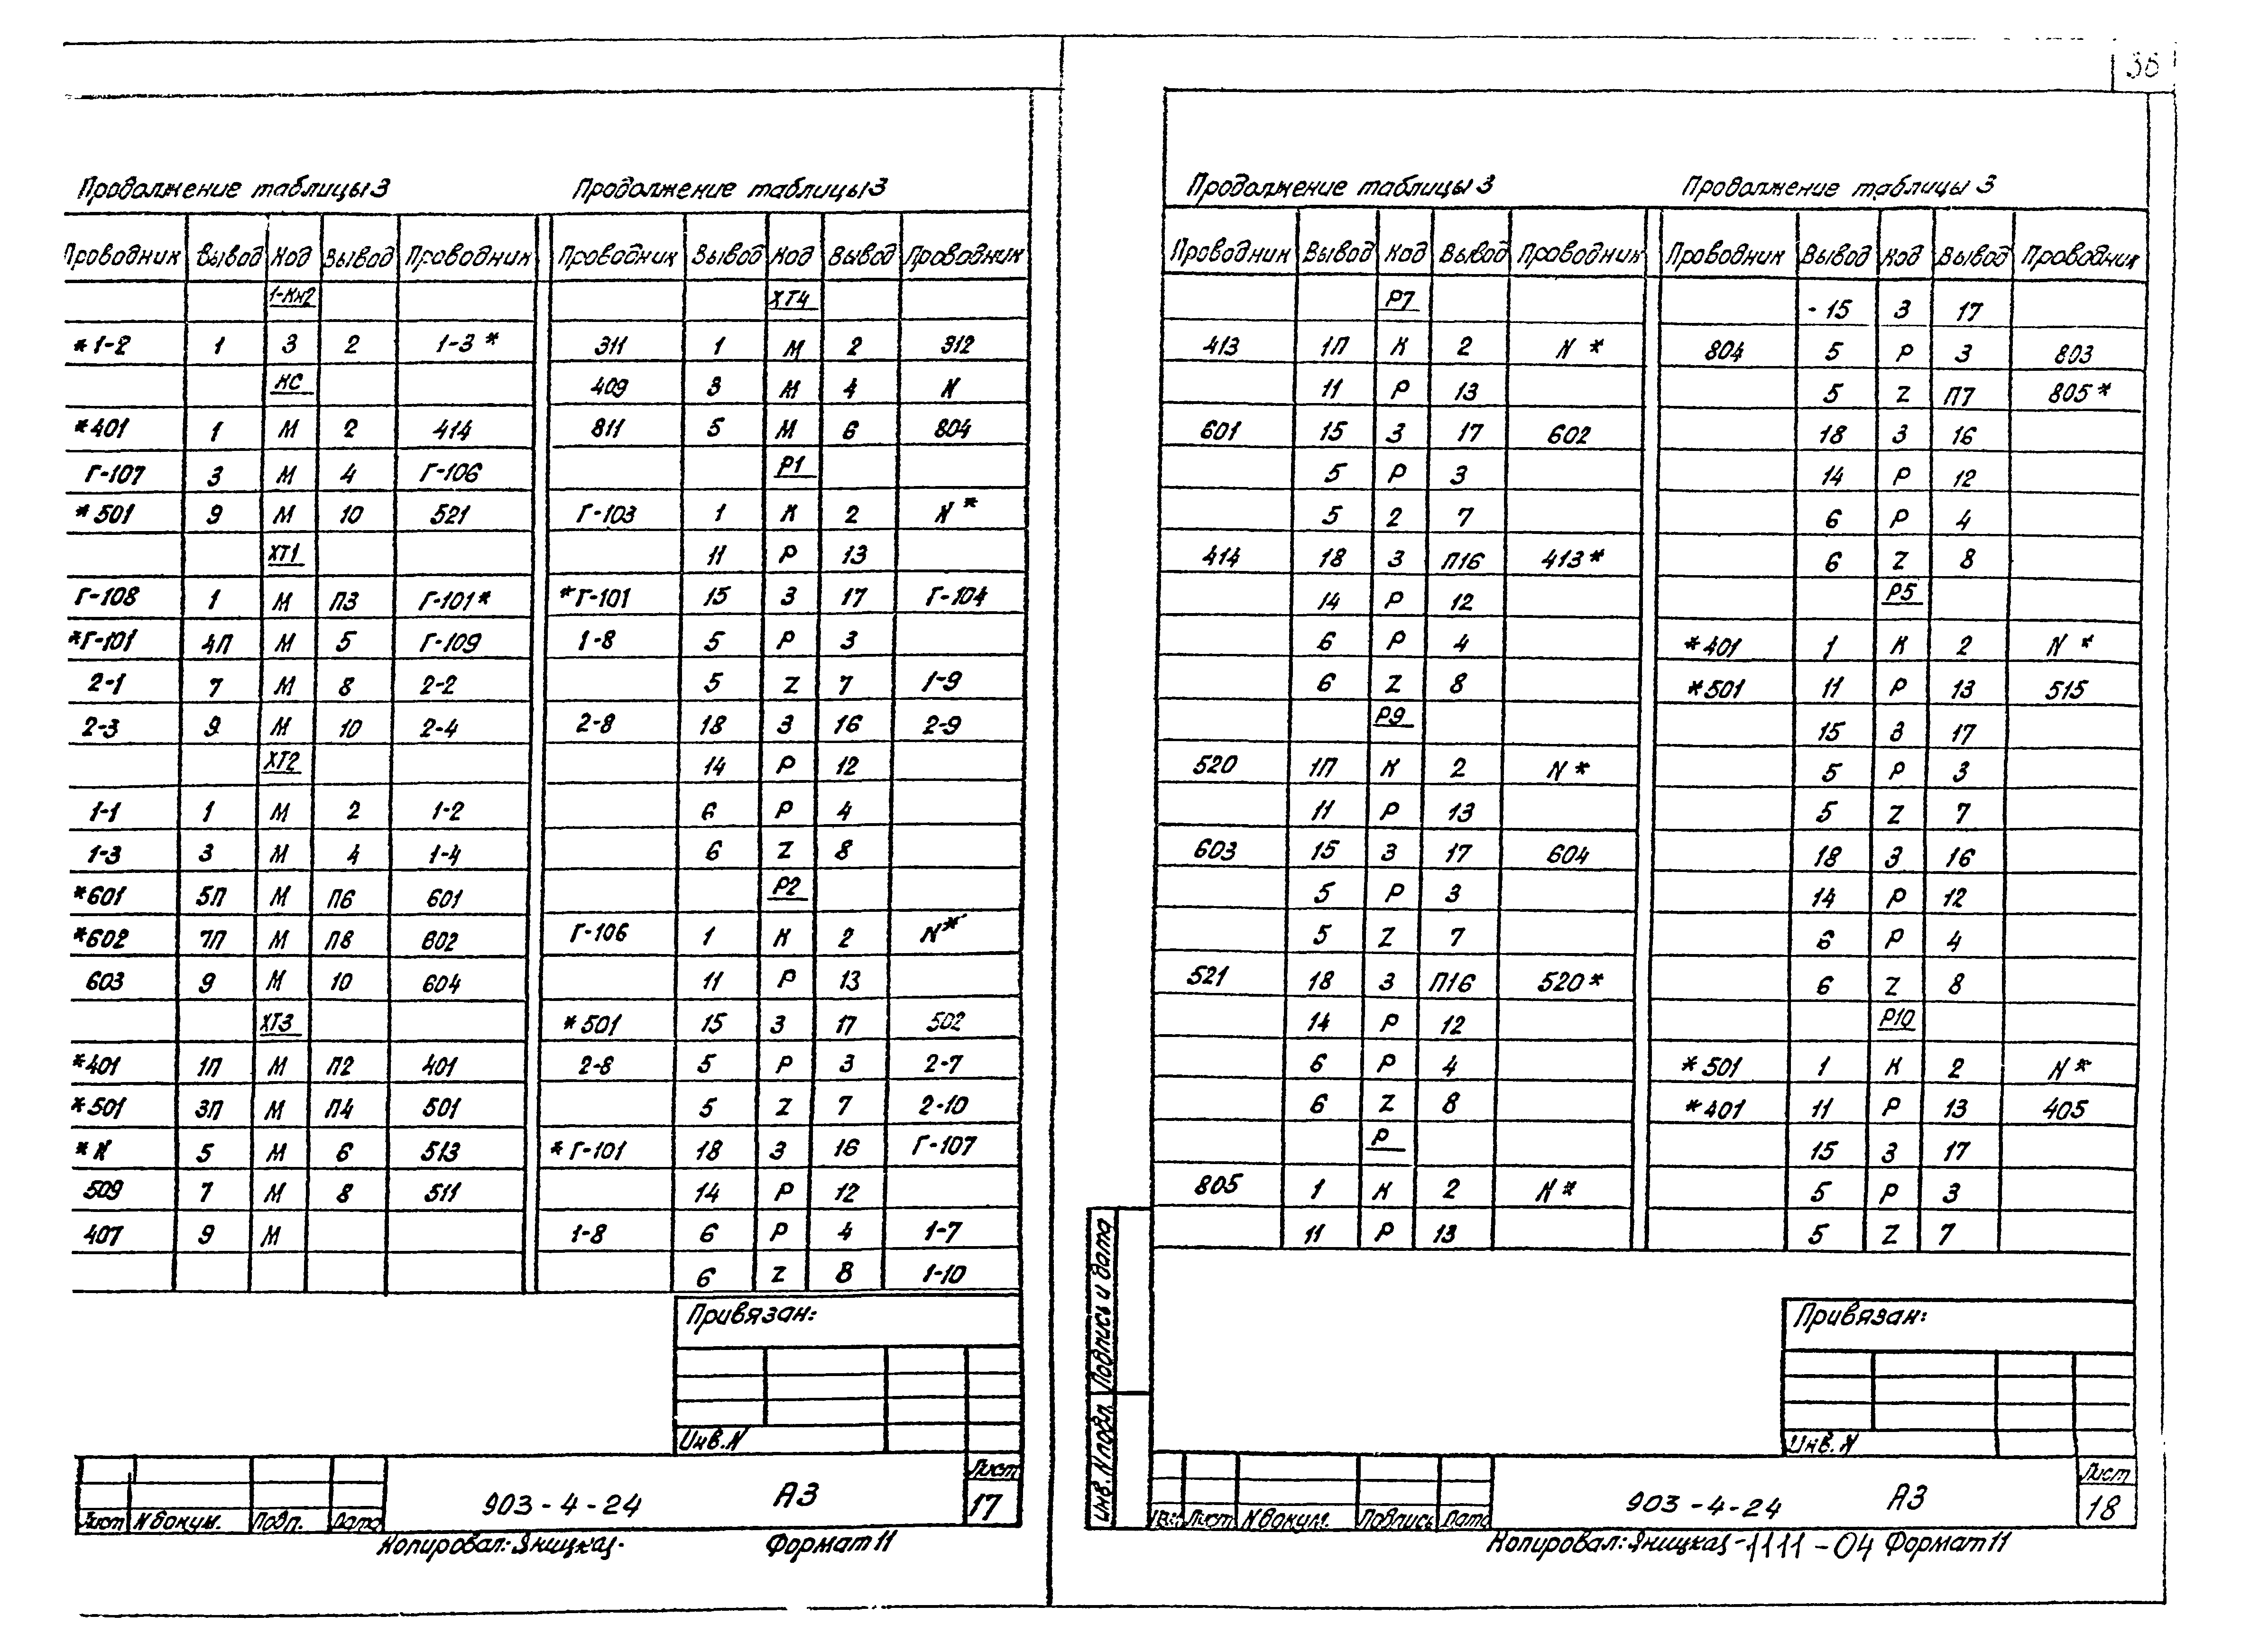 36
Продолжение таблицы 3
Проводник Вывод Код Вывод Проводник
1-Кн2
*1-2 1 З 2 1-3*
КС
*401 1 М 2 414
Г-107 3 М 4 Г-106
*501 9 М 10 521
ХТ1
Г-108 1 М П3 Г-101*
*Г-101 4П М 5 Г-109
2-1 7 М 8 2-2
2-3 9 М 10 2-4
ХТ2
1-1 1 М 2 1-2
1-3 3 М 4 1-4
*601 5П М П6 601
*602 7П М П8 602
603 9 М 10 604
ХТ3
*401 1П М П2 401
*501 3П М П4 501
*N 5 М 6 513
509 7 М 8 511
407 9 М
Продолжение таблицы 3
Проводник Вывод Код Вывод Проводник
ХТ4
311 1 М 2 312
409 3 М 4 N
811 5 М 6 804
Р1
Г-103 1 К 2 N*
11 Р 13
*Г-101 15 З 17 Г-104
1-8 5 Р 3
5 Z 7 1-9
2-8 18 З 16 2-9
14 Р 12
6 Р 4
6 Z 8
Р2
Г-106 1 К 2 N*
11 Р 13
*501 15 З 17 502
2-8 5 Р 3 2-7
5 Z 7 2-10
*Г-101 18 З 16 Г-107
14 Р 12
1-8 6 Р 4 1-7
6 Z 8 1-10
Привязан:
Инв. N
Лист N докум. Подп. Дата
903-4-24 А3
Лист
17
Копировал: Яницкая
Формат 11
Продолжение таблицы 3
Проводник Вывод Код Вывод Проводник
Р7
413 1П К 2 N*
11 Р 13
601 15 З 17 602
5 Р 3
5 2 7
414 18 З П16 413*
14 Р 12
6 Р 4
6 Z 8
Р9
520 1П К 2 N*
11 Р 13
603 15 З 17 604
5 Р 3
5 Z 7
521 18 З П16 520*
14 Р 12
6 Р 4
6 Z 8
Р
805 1 К 2 N*
11 Р 13
Продолжение таблицы 3
Проводник Вывод Код Вывод Проводник
- 15 З 17
804 5 Р 3 803
5 Z П7 805*
18 З 16
14 Р 12
6 Р 4
6 Z 8
Р5
*401 1 К 2 N*
*501 11 Р 13 515
15 З 17
5 Р 3
5 Z 7
18 З 16
14 Р 12
6 Р 4
6 Z 8
Р10
*501 1 К 2 N*
*401 11 Р 13 405
15 З 17
5 Р 3
5 Z 7
Подпись и дата
Инв. N подл.
Привязан:
Инв. N
Лист N докум. Подпись Дата
903-4-24 А3
Лист
18
Копировал: Яницкая -1111-04 Формат 11